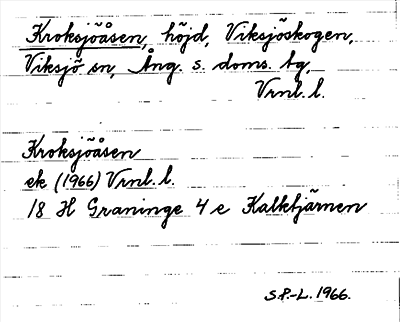 Kroksjöåsen, höjd, Viksjöskogen,
Viksjö sn, Ång. s. doms. tg,
Vrnl. l.
Kroksjöåsen
ek (1966) Vrnl. l.
18 H Graninge 4 e Kalktjärnen
S.P.-L. 1966.